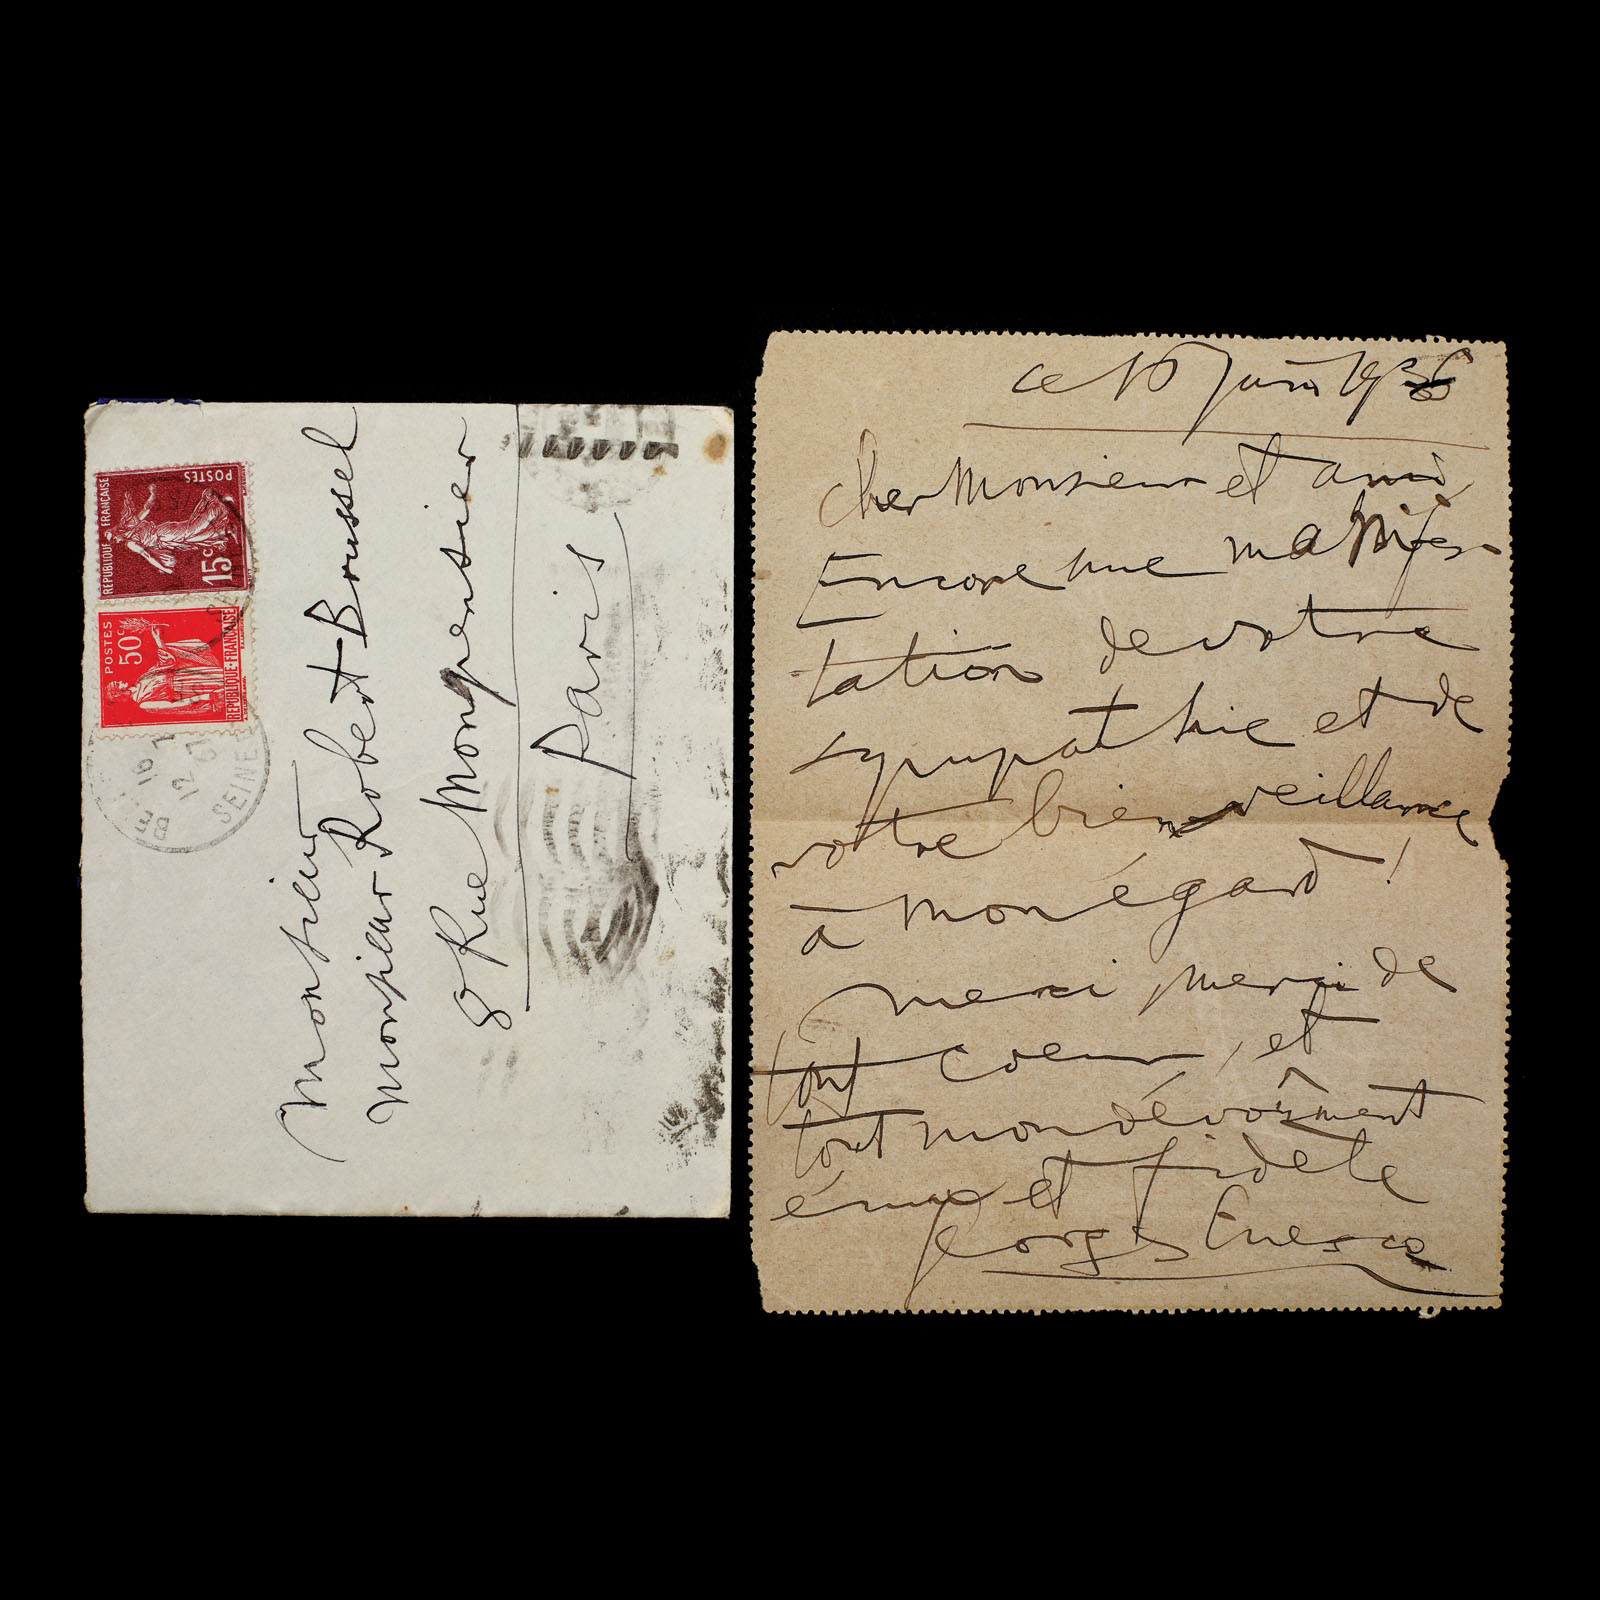 REPUBLIQUE FRANÇAISE
POSTES
15c
POSTES
50c
REPUBLIQUE FRANÇAISE
16
12
SEINE
Monsieur
Monsieur Robert Brussel
8 Rue Monpensier
Paris
ce 16 Juin 1936
Cher Monsieur et ami,
Encore une manifes-
tation de votre
sympathie et de
votre bienveillance
à mon égard !
Merci, merci de
tout coeur, et
tout mon dévoûment
ému et fidèle
Georges Enesco